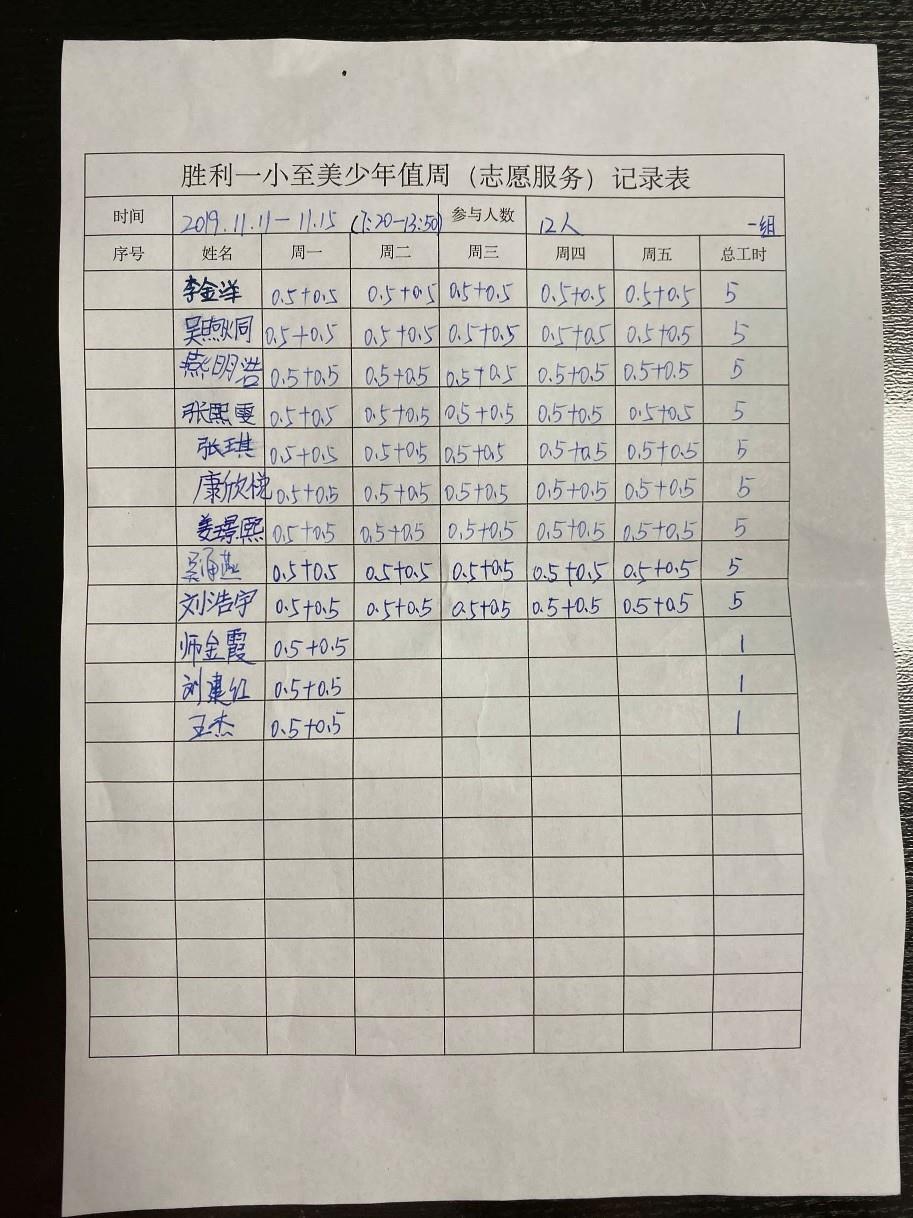 胜利一小至美少年值周（志愿服务）记录表
时间 2019.11.11－11.15 (7:20－13:50) 参与人数 12人 一组
序号 姓名 周一 周二 周三 周四 周五 总工时
李金洋 0.5+0.5 0.5+0.5 0.5+0.5 0.5+0.5 0.5+0.5 5
吴 0.5+0.5 0.5+0.5 0.5+0.5 0.5+0.5 0.5+0.5 5
燕明浩 0.5+0.5 0.5+0.5 0.5+0.5 0.5+0.5 0.5+0.5 5
张熙雯 0.5+0.5 0.5+0.5 0.5+0.5 0.5+0.5 0.5+0.5 5
张琪 0.5+0.5 0.5+0.5 0.5+0.5 0.5+0.5 0.5+0.5 5
康欣悦 0.5+0.5 0.5+0.5 0.5+0.5 0.5+0.5 0.5+0.5 5
姜璟熙 0.5+0.5 0.5+0.5 0.5+0.5 0.5+0.5 0.5+0.5 5
吴 0.5+0.5 0.5+0.5 0.5+0.5 0.5+0.5 0.5+0.5 5
刘浩宇 0.5+0.5 0.5+0.5 0.5+0.5 0.5+0.5 0.5+0.5 5
师金霞 0.5+0.5 1
刘建红 0.5+0.5 1
王杰 0.5+0.5 1